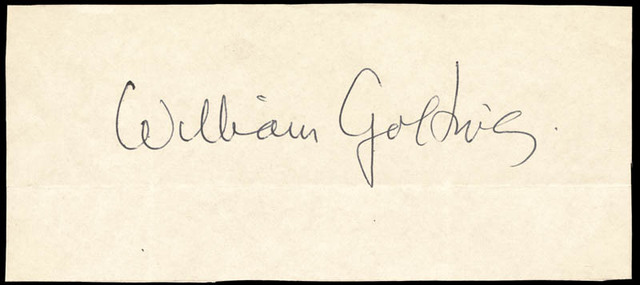 William Golding.